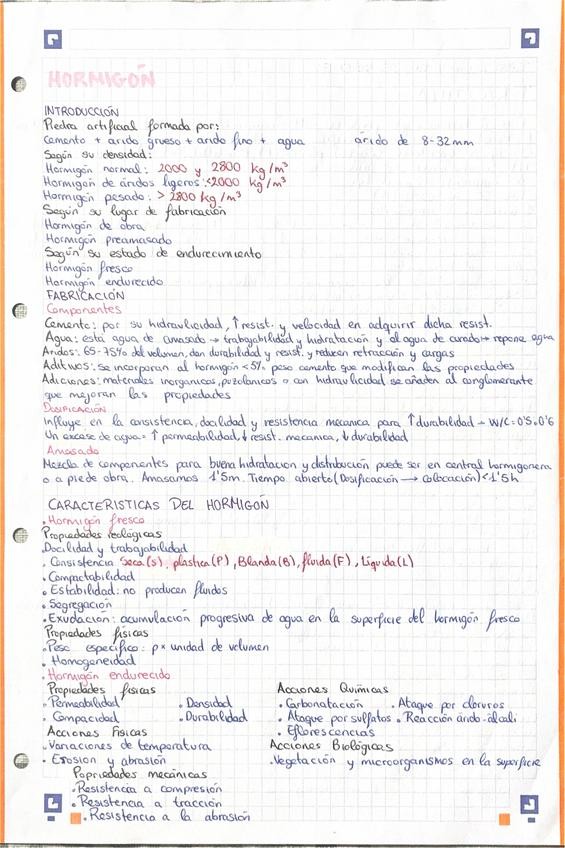 HORMIGÓN
INTRODUCCIÓN
Piedra artificial formada por:
Cemento + arido grueso + arido fino + agua árido de 8-32mm
Según su densidad:
Hormigón normal: 2000 y 2800 kg/m³
Hormigón de áridos ligeros: <2000 kg/m³
Hormigón pesado: > 2800 kg/m³
Según su lugar de fabricación
Hormigón de obra
Hormigón preamasado
Según su estado de endurecimiento
Hormigón fresco
Hormigón endurecido
FABRICACIÓN
Componentes
Cemento: por su hidraulicidad, ↑resist. y velocidad en adquirir dicha resist.
Agua: está agua de amasado → trabajabilidad y hidratación y al agua de curado → repone agua
Áridos: 65-75% del volumen, dan durabilidad y resist. y reducen retracción y cargas
Aditivos: se incorporan al hormigón <5% peso cemento que modifican las propiedades
Adiciones: materiales inorganicos, puzolanicos o con hidraulicidad se añaden al conglomerante
que mejoran las propiedades
DOSIFICACIÓN
Influye en la consistencia, docilidad y resistencia mecanica para ↑ durabilidad → W/C = 0'5 o 0'6
Un exceso de agua = ↑ permeabilidad, ↓ resist. mecanica, ↓ durabilidad
Amasado
Mezcla de componentes para buena hidratacion y distribución puede ser en central hormigonera
o a pie de obra. Amasamos 1'5m. Tiempo abierto (Dosificación → colocación) < 1'5h
CARACTERISTICAS DEL HORMIGÓN
. Hormigón fresco
Propiedades reológicas
. Docilidad y trabajabilidad
. Consistencia Seca(S), plastica(P), Blanda(B), fluida(F), Líquida(L)
. Compactabilidad
. Estabilidad: no producen fluidos
. Segregación
. Exudación: acumulación progresiva de agua en la superficie del hormigón fresco
Propiedades físicas
. Peso especifico: p × unidad de volumen
. Homogeneidad
. Hormigón endurecido
Propiedades físicas Acciones Químicas
. Permeabilidad . Densidad . Carbonatación . Ataque por cloruros
. Compacidad . Durabilidad . Ataque por sulfatos . Reacción árido-álcali
Acciones Físicas . Eflorescencias
. Variaciones de temperatura Acciones Biológicas
. Erosion y abrasión . Vegetación y microorganismos en la superficie
Propiedades mecánicas
. Resistencia a compresión
. Resistencia a tracción
. Resistencia a la abrasión